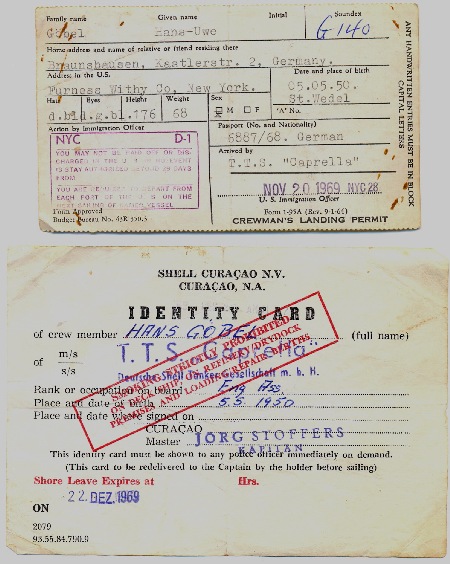 Family name Given name Initial Soundex
Göbel Hans-Uwe G140
Home address and name of relative or friend residing there
Braunshausen, Kastlerstr. 2, Germany.
Address in the U.S. Date and place of birth
Furness Withy Co, New York. 05.05.50.
Hair Eyes Height Weight Sex M F St.Wedel
d.bld.g.bl.176 68 "A" No.
Action by Immigration Officer Passport (No. and Nationality)
NYC D-1 6887/68. German
YOU MAY NOT BE PAID OFF OR DIS-
Arrived by
T.T.S. "Caprella"
FROM
YOU ARE REQUIRED TO DEPART FROM
EACH PORT OF THE U.S. ON THE
NOV 20 1969 NYC 28
U. S. Immigration Officer
Form Approved Form I-95A
Budget Bureau No. CREWMAN'S LANDING PERMIT
ANY HANDWRITTEN ENTRIES MUST BE IN BLOCK
CAPITAL LETTERS
SHELL CURAÇAO N.V.
CURAÇAO, N.A.
IDENTITY CARD
of crew member HANS GÖBEL (full name)
of m/s s/s T.T.S. "Caprella"
Deutsche Shell Tanker-Gesellschaft m. b. H.
Rank or occupation on board Eng. Ass.
Place and date of birth 5.5.1950
Place and date when signed on
SMOKING STRICTLY PROHIBITED
ON DECK SHIP, IN REFINERY/DRYDOCK
PREMISES AND LOADING/REPAIR BERTHS
CURAÇAO
Master JÖRG STOFFERS
KAPITÄN
This identity card must be shown to any police officer immediately on demand.
(This card to be redelivered to the Captain by the holder before sailing)
Shore Leave Expires at Hrs.
22. DEZ. 1969
ON
2079
93.55.84.790.9